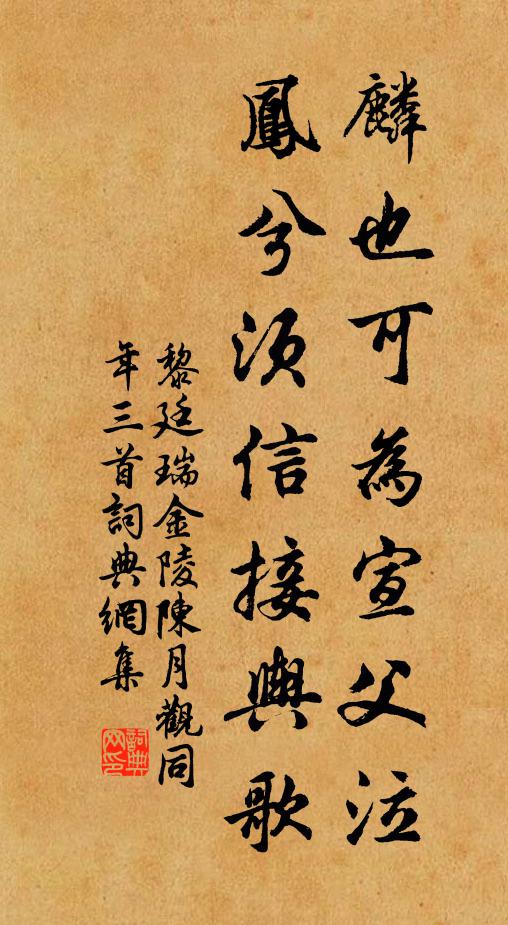 麟也可為宣父泣
鳳兮須信接輿歌
黎廷瑞金陵陳月觀同
年三首詞典網集
詞典
网印